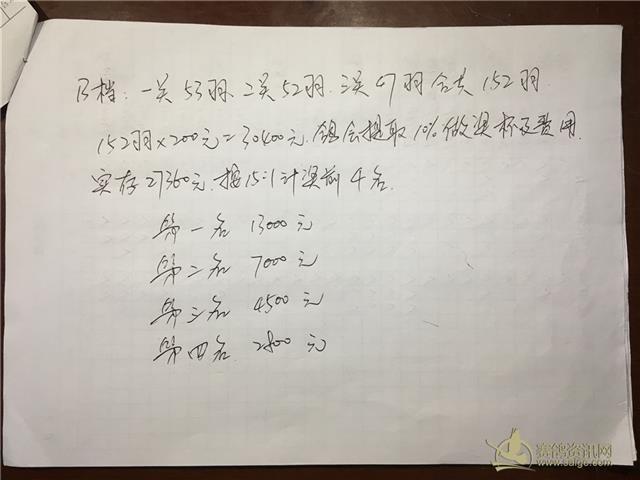 B档: 一关53羽、二关52羽、三关47羽合共152羽.
152羽×200元=30400元.组会提取10%做奖杯及费用.
实存27360元.按15:1计奖前4名.
第一名 13000元
第二名 7000元
第三名 4500元
第四名 2800元
赛鸽资讯网
www.saigo.com